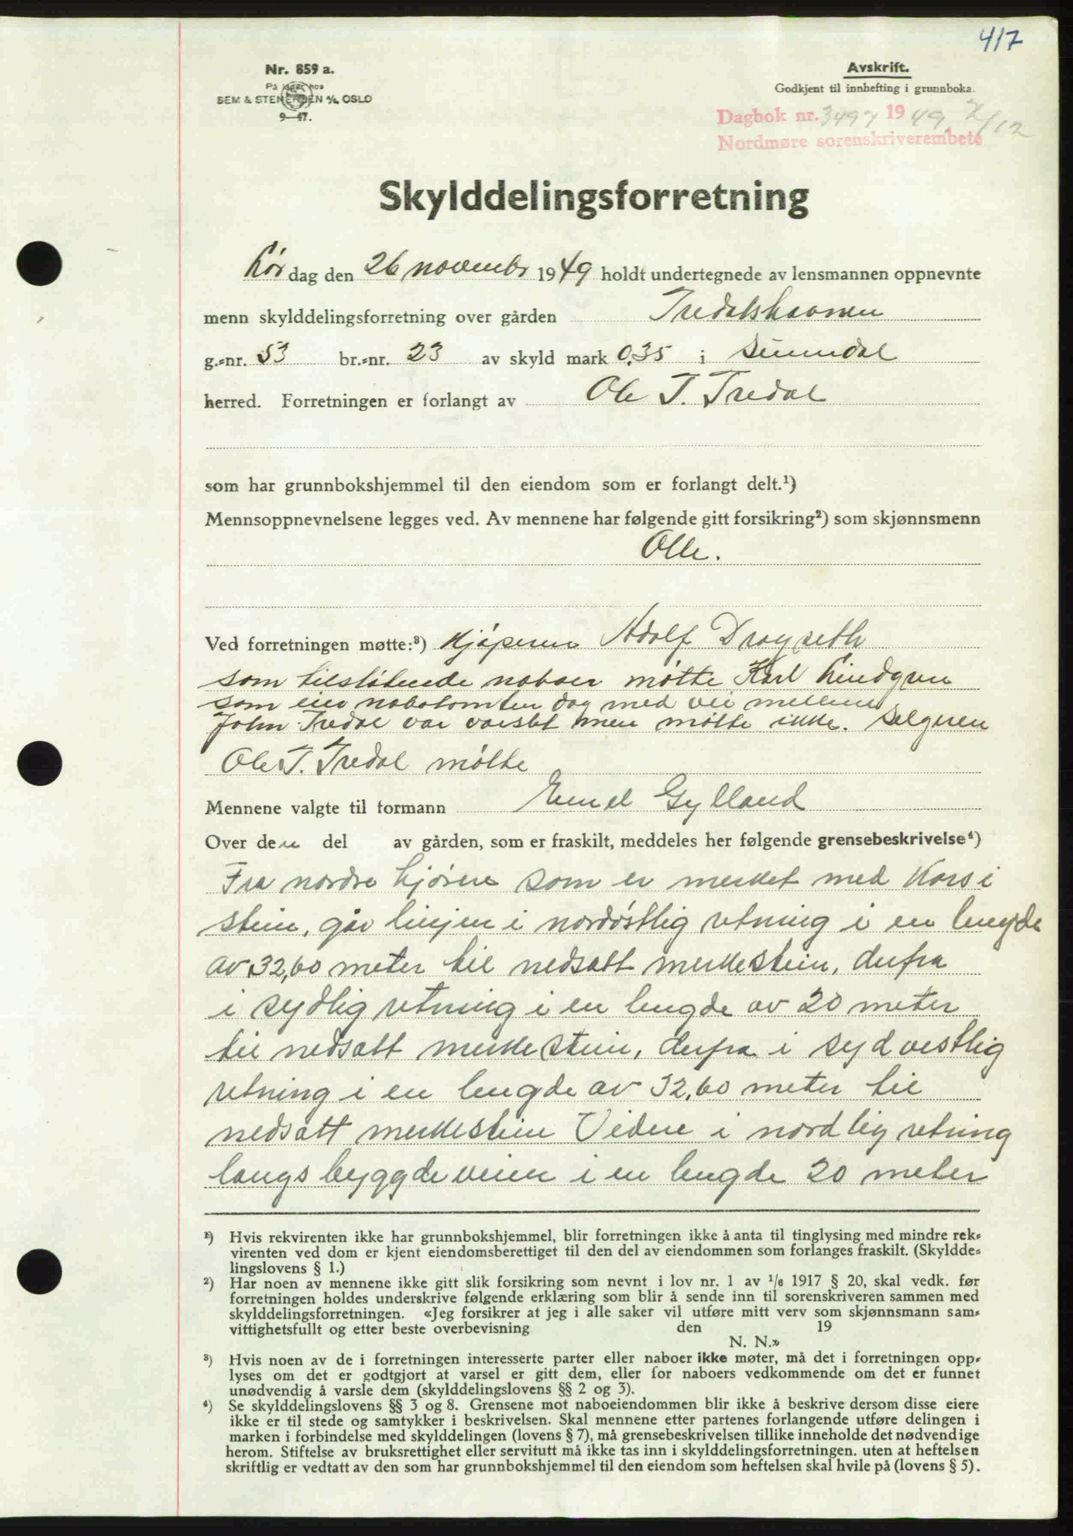 417
Nr. 859 a.
På lager hos
SEM & STENERSEN A/S, OSLO
9—47.
Avskrift.
Godkjent til innhefting i grunnboka.
Dagbok nr. 3497 1949 7/12
Nordmøre sorenskriverembete
Skylddelingsforretning
Lør dag den 26 november 1949 holdt undertegnede av lensmannen oppnevnte
menn skylddelingsforretning over gården Tredalshavnen
g.-nr. 53 br.-nr. 23 av skyld mark 0,35 i Sunndal
herred. Forretningen er forlangt av Ole T. Tredal
som har grunnbokshjemmel til den eiendom som er forlangt delt.¹)
Mennsoppnevnelsene legges ved. Av mennene har følgende gitt forsikring²) som skjønnsmenn
Alle.
Ved forretningen møtte:³) Kjøperen Adolf Drøyseth
som tilstøtende naboer møtte Karl Lindgren
som eier nabotomten dog med vei mellem
John Tredal var varslet men møtte ikke. Selgeren
Ole T. Tredal møtte
Mennene valgte til formann Gylland
Over den del av gården, som er fraskilt, meddeles her følgende grensebeskrivelse⁴)
Fra nordre hjørne som er merket med Kors i
stein, går linjen i nordøstlig retning i en lengde
av 32,60 meter til nedsatt merkestein, derfra
i sydlig retning i en lengde av 20 meter
til nedsatt merkestein, derfra i sydvestlig
retning i en lengde av 32,60 meter til
nedsatt merkestein Videre i nordlig retning
langs bygdeveien i en lengde 20 meter
¹) Hvis rekvirenten ikke har grunnbokshjemmel, blir forretningen ikke å anta til tinglysing med mindre rek-
virenten ved dom er kjent eiendomsberettiget til den del av eiendommen som forlanges fraskilt. (Skyldde-
lingslovens § 1.)
²) Har noen av mennene ikke gitt slik forsikring som nevnt i lov nr. 1 av 1/6 1917 § 20, skal vedk. før
forretningen holdes underskrive følgende erklæring som blir å sende inn til sorenskriveren sammen med
skylddelingsforretningen. «Jeg forsikrer at jeg i alle saker vil utføre mitt verv som skjønnsmann sam-
vittighetsfullt og etter beste overbevisning den 19
N. N.»
³) Hvis noen av de i forretningen interesserte parter eller naboer ikke møter, må det i forretningen opp-
lyses om det er godtgjort at varsel er gitt dem, eller for naboers vedkommende om det er funnet
unødvendig å varsle dem (skylddelingslovens §§ 2 og 3).
⁴) Se skylddelingslovens §§ 3 og 8. Grensene mot naboeiendommen blir ikke å beskrive dersom disse eiere
ikke er til stede og samtykker i beskrivelsen. Skal mennene etter partenes forlangende utføre delingen i
marken i forbindelse med skylddelingen (lovens § 7), må grensebeskrivelsen tillike inneholde det nødvendige
herom. Stiftelse av bruksrettighet eller servitutt må ikke tas inn i skylddelingsforretningen. uten at heftelsen
skriftlig er vedtatt av den som har grunnbokshjemmel til den eiendom som heftelsen skal hvile på (lovens § 5).